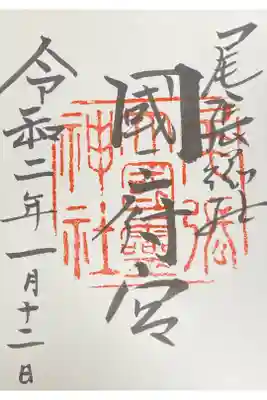 尾張総社
國府宮
令和二年一月十二日
尾張
大國靈
神社